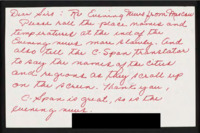 Dear Sirs: Re: Evening News from Moscow
Please roll the place names and
temperatures at the end of the
Evening news more slowly. And
also tell the C-Span translator
to say the names of the cities
and regions as they scroll up
on the screen. Thank you,
C-Span is great, so is the
evening news.